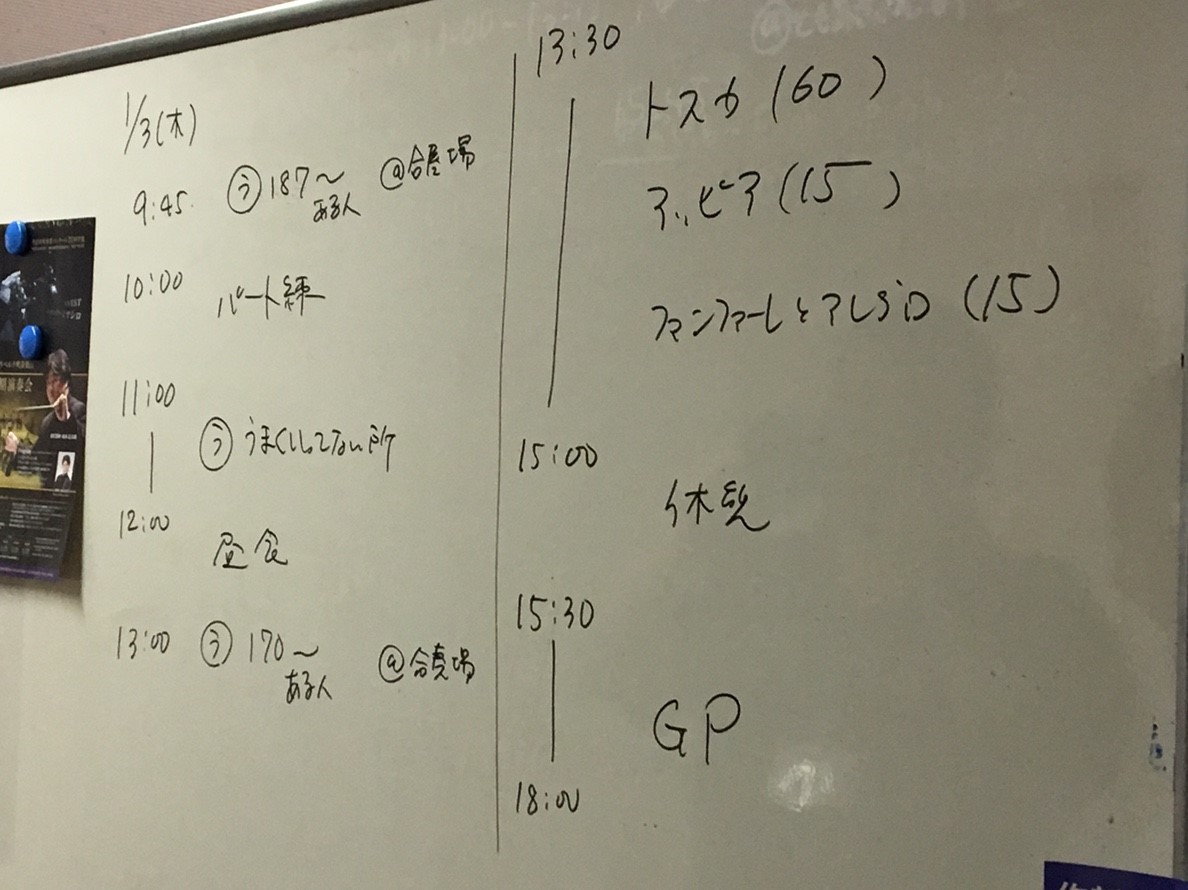 1/3(木)
9:45 ㋒ 187〜 @合奏場
ある人
10:00 パート練
11:00
㋒ うまくいってない所
12:00
昼食
13:00 ㋒ 170〜 @合奏場
ある人
13:30
トスカ (60)
アッピア (15)
ファンファーレとアレグロ (15)
15:00
休憩
15:30
GP
18:00
演奏会